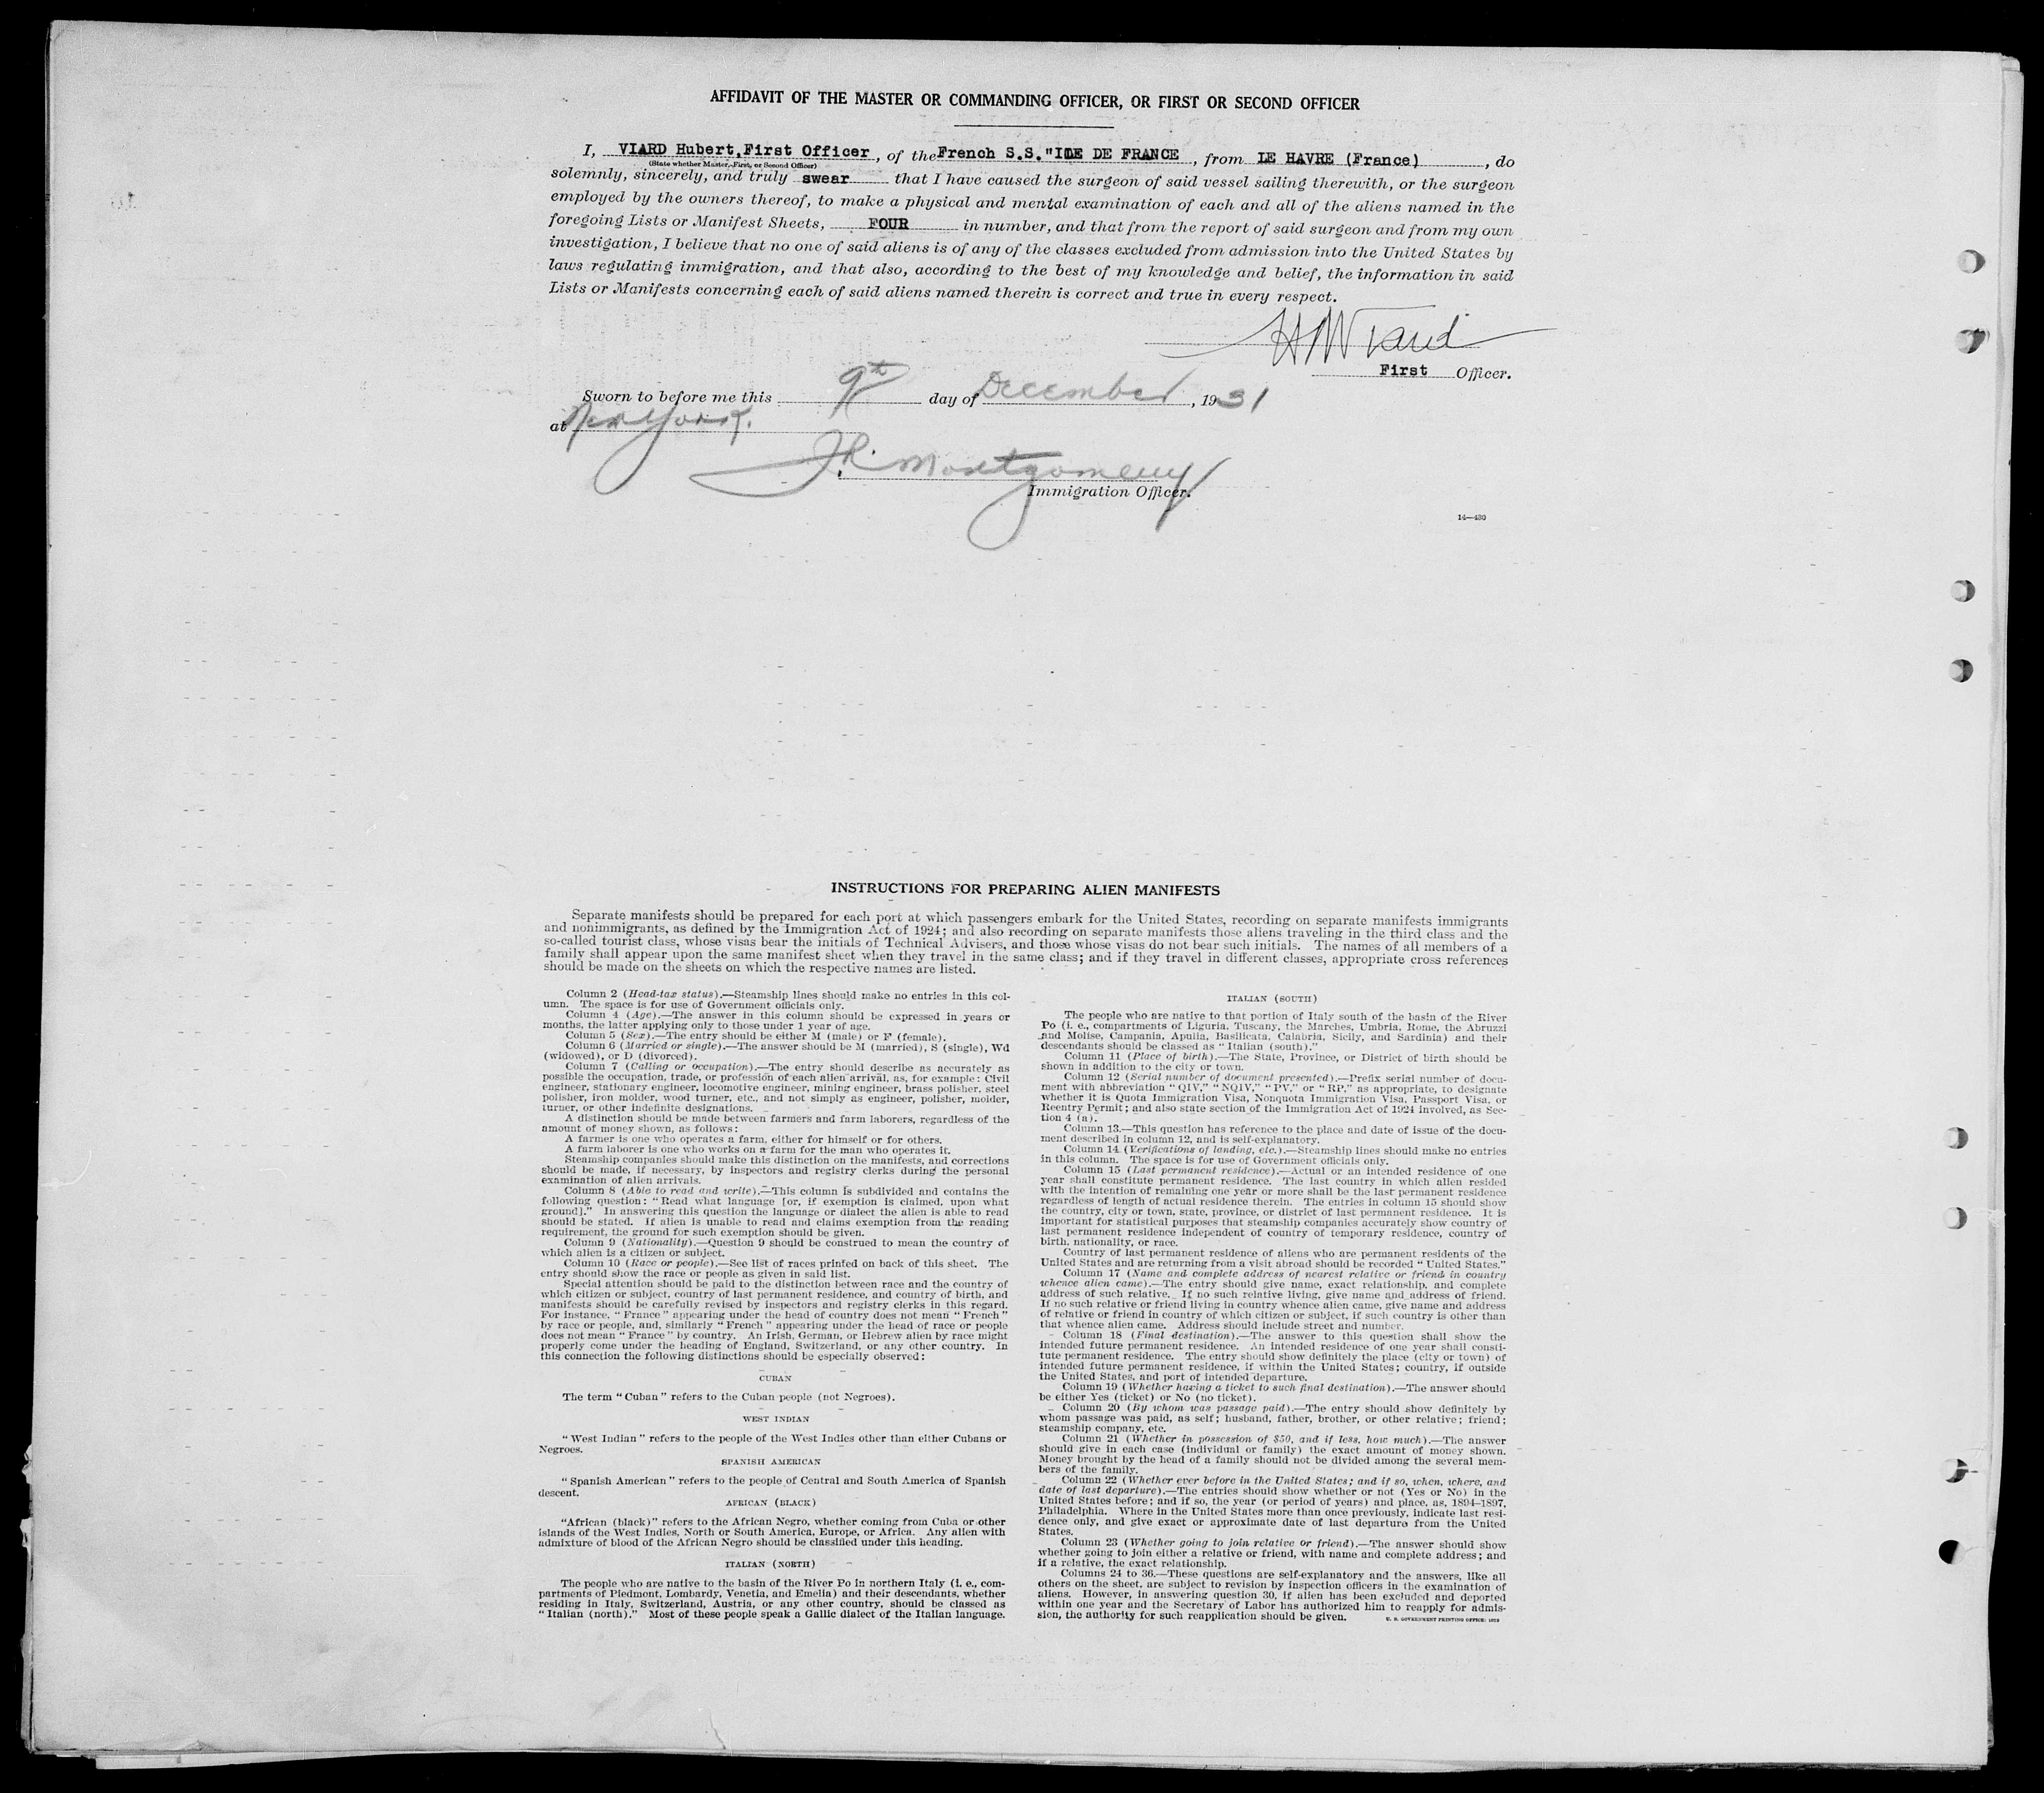 AFFIDAVIT OF THE MASTER OR COMMANDING OFFICER, OR FIRST OR SECOND OFFICER
I, VIARD Hubert, First Officer, of the French S.S. "ILE DE FRANCE, from LE HAVRE (France), do
(State whether Master, First, or Second Officer)
solemnly, sincerely, and truly swear that I have caused the surgeon of said vessel sailing therewith, or the surgeon
employed by the owners thereof, to make a physical and mental examination of each and all of the aliens named in the
foregoing Lists or Manifest Sheets, FOUR in number, and that from the report of said surgeon and from my own
investigation, I believe that no one of said aliens is of any of the classes excluded from admission into the United States by
laws regulating immigration, and that also, according to the best of my knowledge and belief, the information in said
Lists or Manifests concerning each of said aliens named therein is correct and true in every respect.
First Officer.
Sworn to before me this 9th day of December, 1931
at New York.
JR. Montgomery
Immigration Officer.
14—430
INSTRUCTIONS FOR PREPARING ALIEN MANIFESTS
Separate manifests should be prepared for each port at which passengers embark for the United States, recording on separate manifests immigrants
and nonimmigrants, as defined by the Immigration Act of 1924; and also recording on separate manifests those aliens traveling in the third class and the
so-called tourist class, whose visas bear the initials of Technical Advisers, and those whose visas do not bear such initials. The names of all members of a
family shall appear upon the same manifest sheet when they travel in the same class; and if they travel in different classes, appropriate cross references
should be made on the sheets on which the respective names are listed.
Column 2 (Head-tax status).—Steamship lines should make no entries in this col-
umn. The space is for use of Government officials only.
Column 4 (Age).—The answer in this column should be expressed in years or
months, the latter applying only to those under 1 year of age.
Column 5 (Sex).—The entry should be either M (male) or F (female).
Column 6 (Married or single).—The answer should be M (married), S (single), Wd
(widowed), or D (divorced).
Column 7 (Calling or occupation).—The entry should describe as accurately as
possible the occupation, trade, or profession of each alien arrival, as, for example: Civil
engineer, stationary engineer, locomotive engineer, mining engineer, brass polisher, steel
polisher, iron molder, wood turner, etc., and not simply as engineer, polisher, molder,
turner, or other indefinite designations.
A distinction should be made between farmers and farm laborers, regardless of the
amount of money shown, as follows:
A farmer is one who operates a farm, either for himself or for others.
A farm laborer is one who works on a farm for the man who operates it.
Steamship companies should make this distinction on the manifests, and corrections
should be made, if necessary, by inspectors and registry clerks during the personal
examination of alien arrivals.
Column 8 (Able to read and write).—This column is subdivided and contains the
following question: "Read what language [or, if exemption is claimed, upon what
ground]." In answering this question the language or dialect the alien is able to read
should be stated. If alien is unable to read and claims exemption from the reading
requirement, the ground for such exemption should be given.
Column 9 (Nationality).—Question 9 should be construed to mean the country of
which alien is a citizen or subject.
Column 10 (Race or people).—See list of races printed on back of this sheet. The
entry should show the race or people as given in said list.
Special attention should be paid to the distinction between race and the country of
which citizen or subject, country of last permanent residence, and country of birth, and
manifests should be carefully revised by inspectors and registry clerks in this regard.
For instance, "France" appearing under the head of country does not mean "French"
by race or people, and, similarly "French" appearing under the head of race or people
does not mean "France" by country. An Irish, German, or Hebrew alien by race might
properly come under the heading of England, Switzerland, or any other country. In
this connection the following distinctions should be especially observed:
CUBAN
The term "Cuban" refers to the Cuban people (not Negroes).
WEST INDIAN
"West Indian" refers to the people of the West Indies other than either Cubans or
Negroes.
SPANISH AMERICAN
"Spanish American" refers to the people of Central and South America of Spanish
descent.
AFRICAN (BLACK)
"African (black)" refers to the African Negro, whether coming from Cuba or other
islands of the West Indies, North or South America, Europe, or Africa. Any alien with
admixture of blood of the African Negro should be classified under this heading.
ITALIAN (NORTH)
The people who are native to the basin of the River Po in northern Italy (i. e., com-
partments of Piedmont, Lombardy, Venetia, and Emelia) and their descendants, whether
residing in Italy, Switzerland, Austria, or any other country, should be classed as
"Italian (north)." Most of these people speak a Gallic dialect of the Italian language.
ITALIAN (SOUTH)
The people who are native to that portion of Italy south of the basin of the River
Po (i. e., compartments of Liguria, Tuscany, the Marches, Umbria, Rome, the Abruzzi
and Molise, Campania, Apulia, Basilicata, Calabria, Sicily, and Sardinia) and their
descendants should be classed as "Italian (south)."
Column 11 (Place of birth).—The State, Province, or District of birth should be
shown in addition to the city or town.
Column 12 (Serial number of document presented).—Prefix serial number of docu-
ment with abbreviation "QIV," "NQIV," "PV," or "RP," as appropriate, to designate
whether it is Quota Immigration Visa, Nonquota Immigration Visa, Passport Visa, or
Reentry Permit; and also state section of the Immigration Act of 1924 involved, as Sec-
tion 4 (a).
Column 13.—This question has reference to the place and date of issue of the docu-
ment described in column 12, and is self-explanatory.
Column 14 (Verifications of landing, etc.).—Steamship lines should make no entries
in this column. The space is for use of Government officials only.
Column 15 (Last permanent residence).—Actual or an intended residence of one
year shall constitute permanent residence. The last country in which alien resided
with the intention of remaining one year or more shall be the last permanent residence
regardless of length of actual residence therein. The entries in column 15 should show
the country, city or town, state, province, or district of last permanent residence. It is
important for statistical purposes that steamship companies accurately show country of
last permanent residence independent of country of temporary residence, country of
birth, nationality, or race.
Country of last permanent residence of aliens who are permanent residents of the
United States and are returning from a visit abroad should be recorded "United States."
Column 17 (Name and complete address of nearest relative or friend in country
whence alien came).—The entry should give name, exact relationship, and complete
address of such relative. If no such relative living, give name and address of friend.
If no such relative or friend living in country whence alien came, give name and address
of relative or friend in country of which citizen or subject, if such country is other than
that whence alien came. Address should include street and number.
Column 18 (Final destination).—The answer to this question shall show the
intended future permanent residence. An intended residence of one year shall consti-
tute permanent residence. The entry should show definitely the place (city or town) of
intended future permanent residence, if within the United States; country, if outside
the United States, and port of intended departure.
Column 19 (Whether having a ticket to such final destination).—The answer should
be either Yes (ticket) or No (no ticket).
Column 20 (By whom was passage paid).—The entry should show definitely by
whom passage was paid, as self; husband, father, brother, or other relative; friend;
steamship company, etc.
Column 21 (Whether in possession of $50, and if less, how much).—The answer
should give in each case (individual or family) the exact amount of money shown.
Money brought by the head of a family should not be divided among the several mem-
bers of the family.
Column 22 (Whether ever before in the United States; and if so, when, where, and
date of last departure).—The entries should show whether or not (Yes or No) in the
United States before; and if so, the year (or period of years) and place, as, 1894-1897,
Philadelphia. Where in the United States more than once previously, indicate last resi-
dence only, and give exact or approximate date of last departure from the United
States.
Column 23 (Whether going to join relative or friend).—The answer should show
whether going to join either a relative or friend, with name and complete address; and
if a relative, the exact relationship.
Columns 24 to 36.—These questions are self-explanatory and the answers, like all
others on the sheet, are subject to revision by inspection officers in the examination of
aliens. However, in answering question 30, if alien has been excluded and deported
within one year and the Secretary of Labor has authorized him to reapply for admis-
sion, the authority for such reapplication should be given.
U. S. GOVERNMENT PRINTING OFFICE: